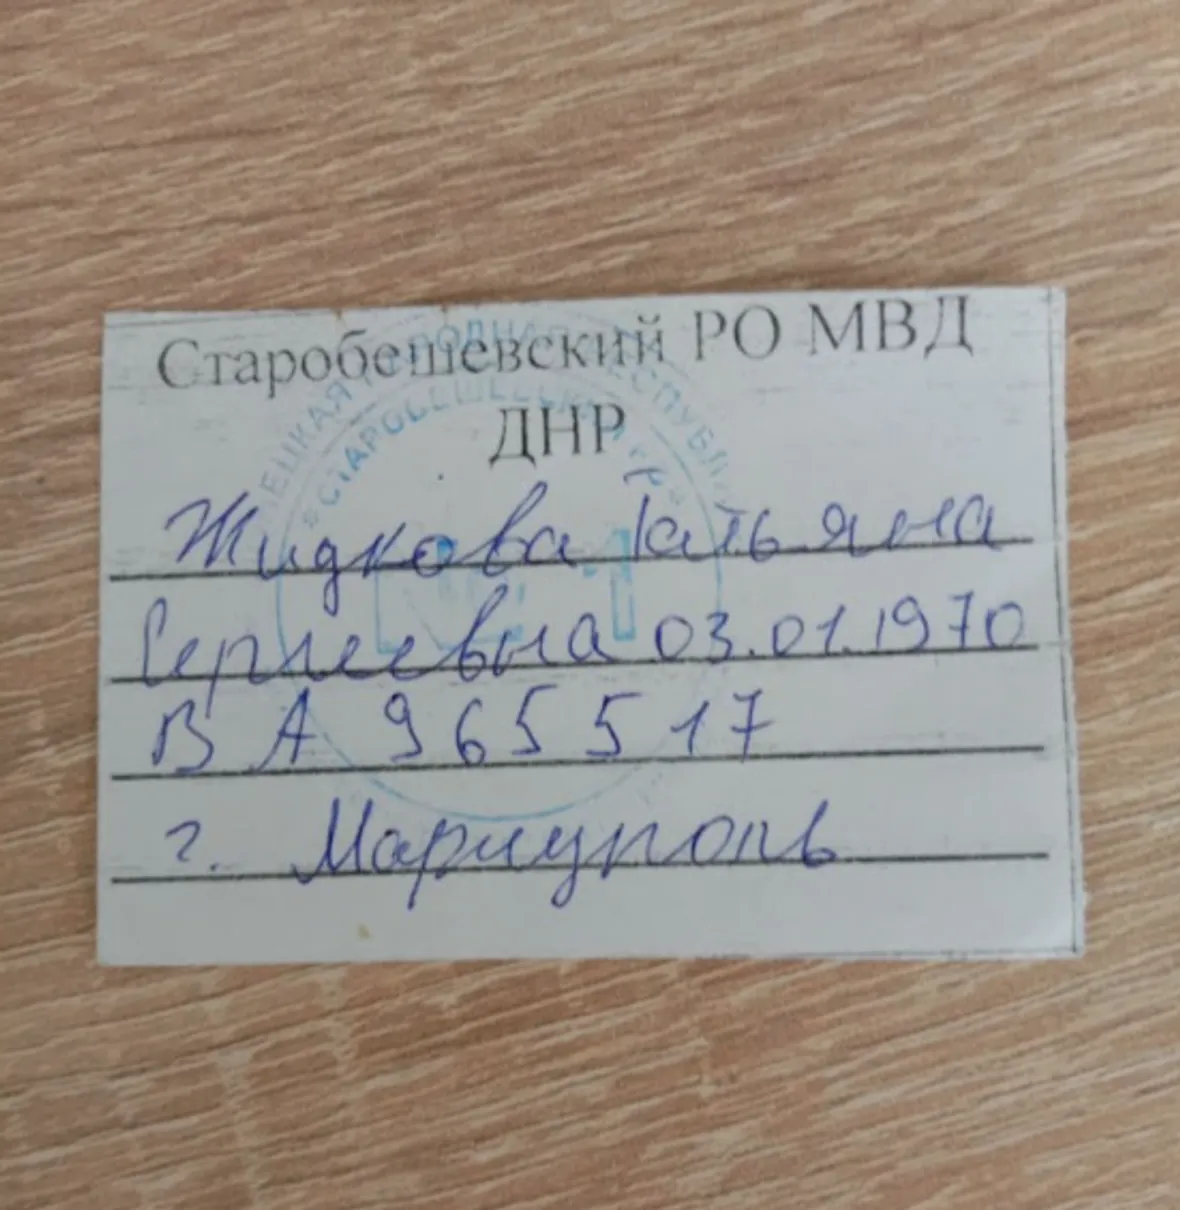 Старобешевский РО МВД
ДНР
Жидкова Татьяна
Сергеевна 03.01.1970
ВА 965517
г. Мариуполь